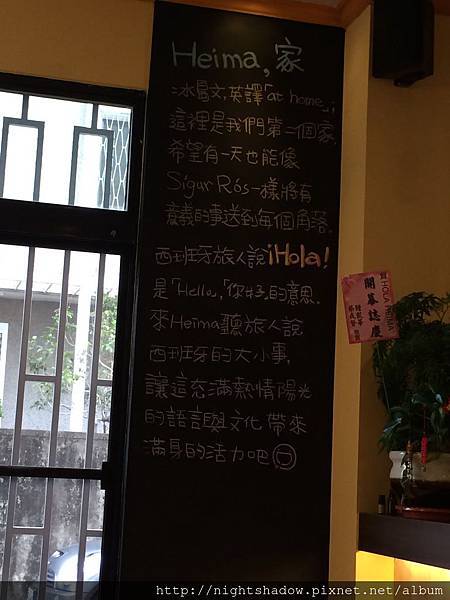 Heima, 家
冰島文,英譯「at home」;
這裡是我們第二個家,
希望有一天也能像
Sigur Rós一樣將有
意義的事送到每個角落.
西班牙旅人說¡Hola!
是「Hello」,「你好」的意思.
來Heima聽旅人說
西班牙的大小事,
讓這充滿熱情陽光
的語言與文化帶來
滿身的活力吧
賀 HOLA HEIMA
開幕誌慶
http://nightshadow.pixnet.net/album